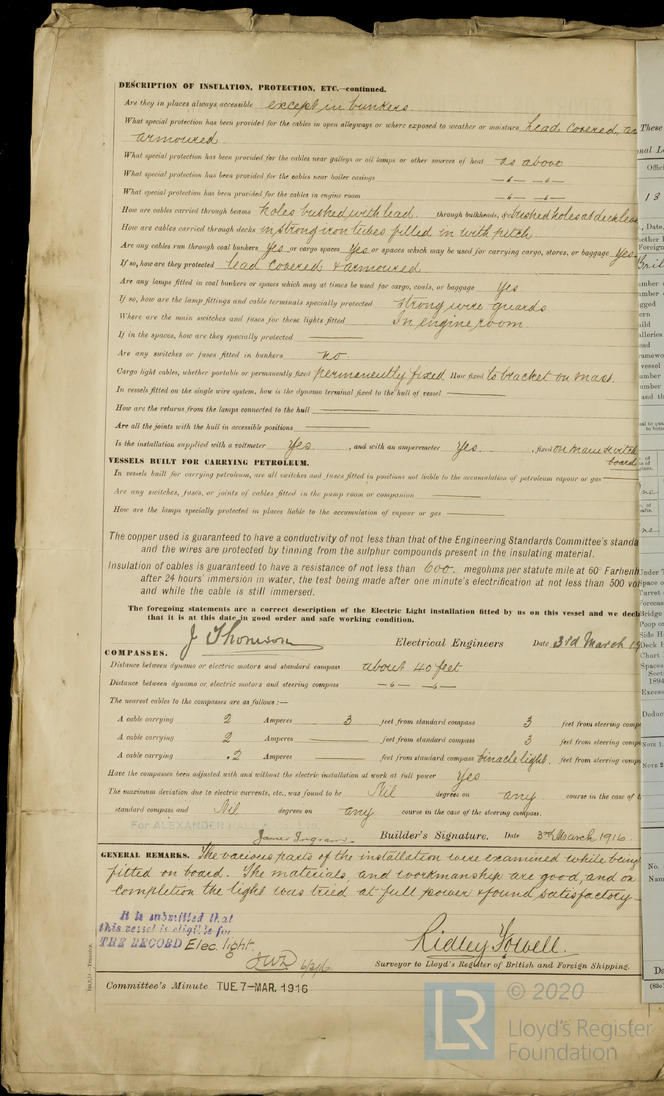 DESCRIPTION OF INSULATION, PROTECTION, ETC.—continued.
Are they in places always accessible except in bunkers
What special protection has been provided for the cables in open alleyways or where exposed to weather or moisture lead covered, and
armoured
What special protection has been provided for the cables near galleys or oil lamps or other sources of heat as above
What special protection has been provided for the cables near boiler casings
What special protection has been provided for the cables in engine room
How are cables carried through beams holes bushed with lead through bulkheads, &c. bushed holes at deck
How are cables carried through decks in strong iron tubes filled in with pitch
Are any cables run through coal bunkers Yes or cargo spaces Yes or spaces which may be used for carrying cargo, stores, or baggage Yes
If so, how are they protected lead covered & armoured
Are any lamps fitted in coal bunkers or spaces which may at times be used for cargo, coals, or baggage Yes
If so, how are the lamp fittings and cable terminals specially protected strong wire guards
Where are the main switches and fuses for these lights fitted In engine room
If in the spaces, how are they specially protected
Are any switches or fuses fitted in bunkers no
Cargo light cables, whether portable or permanently fixed permanently fixed How fixed to bracket on mast.
In vessels fitted on the single wire system, how is the dynamo terminal fixed to the hull of vessel
How are the returns from the lamps connected to the hull
Are all the joints with the hull in accessible positions
Is the installation supplied with a voltmeter Yes , and with an amperemeter Yes. , fixed on main switch
board
VESSELS BUILT FOR CARRYING PETROLEUM.
In vessels built for carrying petroleum, are all switches and fuses fitted in positions not liable to the accumulation of petroleum vapour or gas
Are any switches, fuses, or joints of cables fitted in the pump room or companion
How are the lamps specially protected in places liable to the accumulation of vapour or gas
The copper used is guaranteed to have a conductivity of not less than that of the Engineering Standards Committee's standa
and the wires are protected by tinning from the sulphur compounds present in the insulating material.
Insulation of cables is guaranteed to have a resistance of not less than 600. megohms per statute mile at 60° Farhenh
after 24 hours' immersion in water, the test being made after one minute's electrification at not less than 500 vol
and while the cable is still immersed.
The foregoing statements are a correct description of the Electric Light installation fitted by us on this vessel and we decl
that it is at this date in good order and safe working condition.
J Thomson Electrical Engineers Date 3rd March 19
COMPASSES.
Distance between dynamo or electric motors and standard compass about 40 feet
Distance between dynamo or electric motors and steering compass
The nearest cables to the compasses are as follows:—
A cable carrying 2 Amperes 3 feet from standard compass 3 feet from steering comp
A cable carrying 2 Amperes feet from standard compass 3 feet from steering comp
A cable carrying .2 Amperes feet from standard compass binacle light. feet from steering comp
Have the compasses been adjusted with and without the electric installation at work at full power Yes
The maximum deviation due to electric currents, etc., was found to be Nil degrees on any course in the case of t
standard compass and Nil degrees on any course in the case of the steering compass.
For ALEXANDER HALL
James Ingram. Builder's Signature. Date 3rd March 1916.
GENERAL REMARKS. The various parts of the installation were examined while being
fitted on board. The materials, and workmanship are good, and on
completion the light was tried at full power & found satisfactory
It is submitted that
this vessel is eligible for
THE RECORD Elec. light.
6/3/16
Ridley Yowell.
Surveyor to Lloyd's Register of British and Foreign Shipping.
Committee's Minute TUE. 7-MAR. 1916
LR © 2020
Lloyd's Register
Foundation